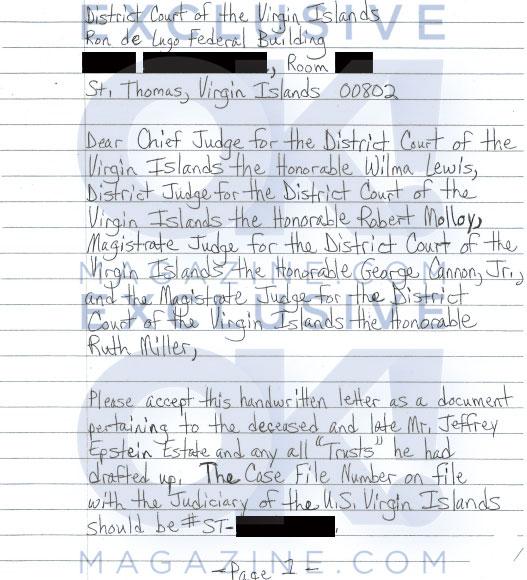 EXCLUSIVE
District Court of the Virgin Islands
Ron de Lugo Federal Building
, Room
St. Thomas, Virgin Islands 00802
Dear Chief Judge for the District Court of the
Virgin Islands the Honorable Wilma Lewis,
District Judge for the District Court of the
Virgin Islands the Honorable Robert Molloy,
Magistrate Judge for the District Court of the
Virgin Islands the Honorable George Cannon, Jr.,
MAGAZINE.COM
and the Magistrate Judge for the District
EXCLUSIVE
Court of the Virgin Islands the Honorable
Ruth Miller,
OK!
Please accept this handwritten letter as a document
pertaining to the deceased and late Mr. Jeffrey
Epstein Estate and any all "Trusts" he had
drafted up. The Case File Number on file
with the Judiciary of the U.S. Virgin Islands
should be #ST-
MAGAZINE.COM
-Page 1-